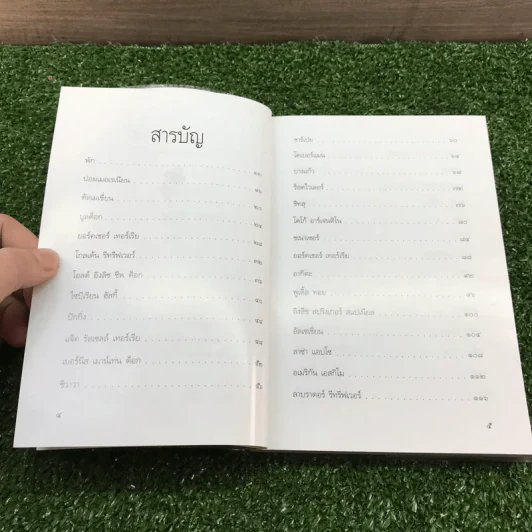 สารบัญ
พัก ๑๐
ปอมเมอเรเนียน
ดัลเมเชี่ยน ๒๐
บูลด็อก ๒๔
ยอร์คเชอร์ เทอร์เรีย ๒๘
โกลเด้น รีทรีฟเวอร์ ๓๒
โอลด์ อิงลิช ชีพ ด็อก ๓๖
ไซบีเรียน ฮัสกี้ ๔๐
ปักกิ่ง ๔๔
แจ็ค รัสเซลล์ เทอร์เรีย ๔๘
เบอร์นีส เมาน์เทน ด็อก ๕๒
ชิวาวา ๕๖
๔
ชาร์เปย ๖๐
โดเบอร์แมน ๖๔
บางแก้ว ๖๘
ร็อตไวเลอร์ ๗๒
ชิสุ ๗๖
โดโก้ อาร์เจนติโน ๘๐
ชเนาเซอร์ ๘๔
ยอร์คเชอร์ เทอร์เรีย ๘๘
อากิตะ
พูเดิ้ล ทอย ๙๖
อิงลิช สปริงเกอร์ สแปเนียล ๑๐๐
อัลเซเชี่ยน ๑๐๔
ลาซา แอปโซ ๑๐๘
อเมริกัน เอสกิโม ๑๑๒
ลาบราดอร์ รีทรีฟเวอร์ ๑๑๖
๕